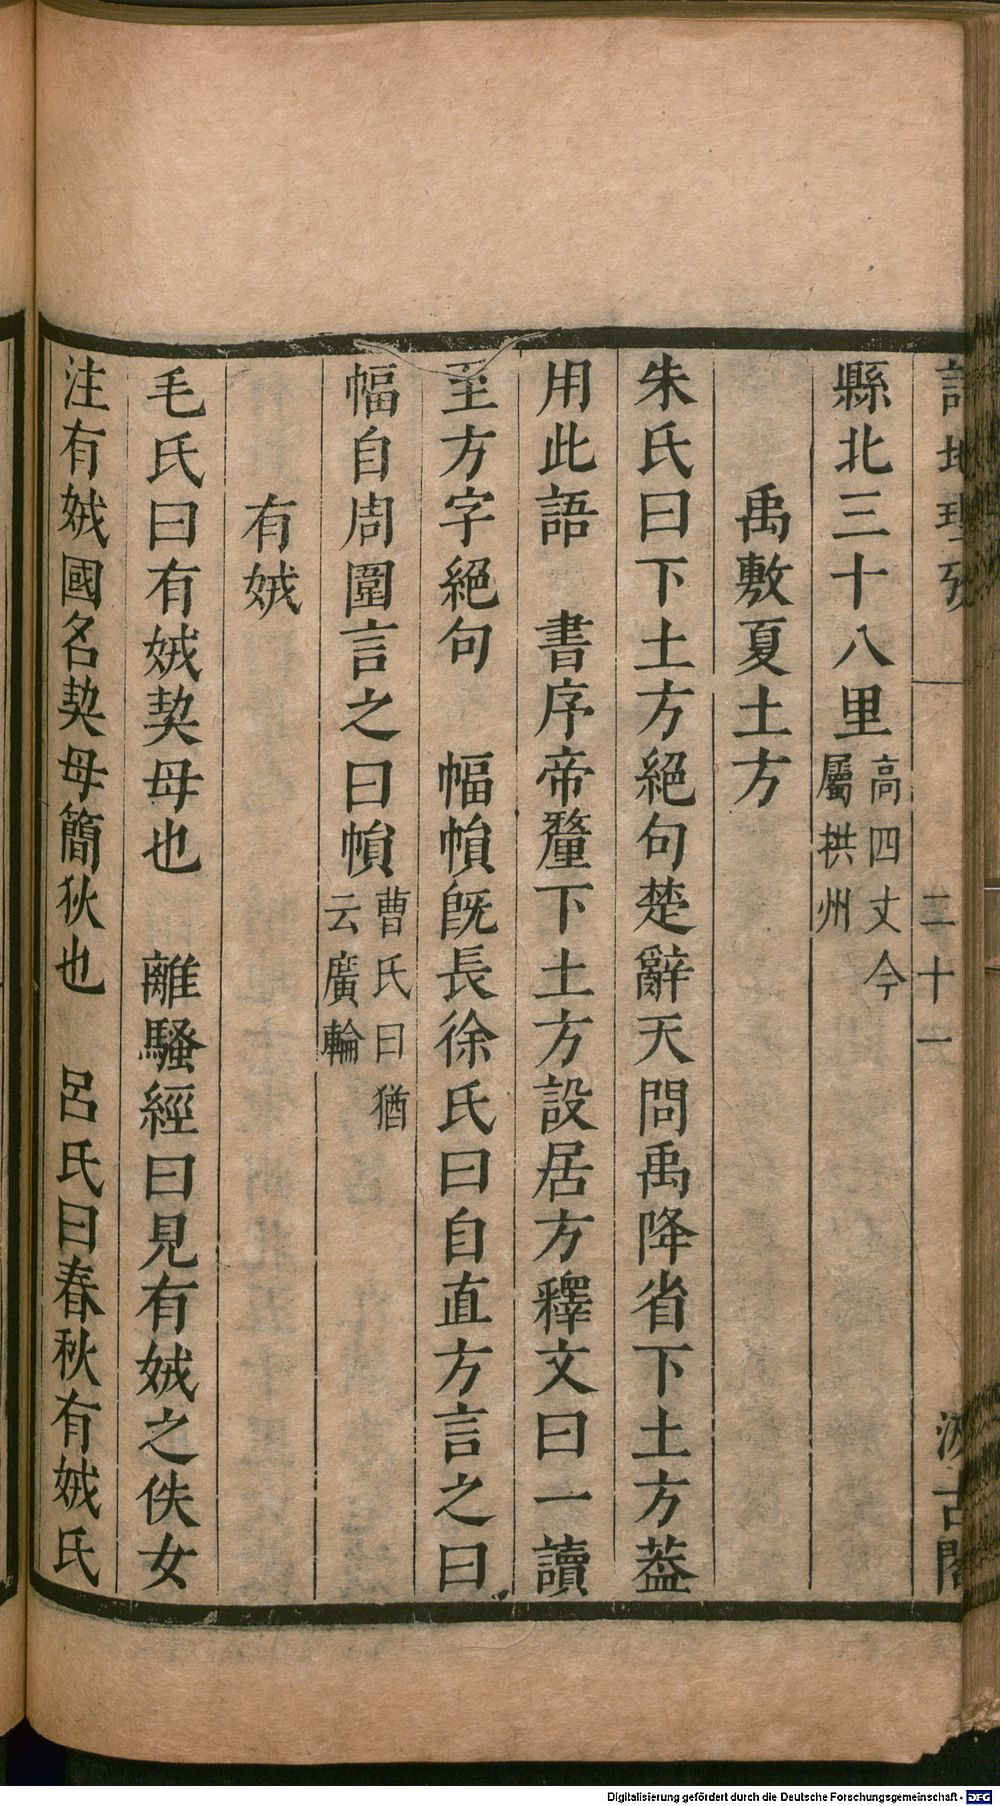 詩地理攷 二十一 汲古閣
縣北三十八里高四丈今屬拱州
禹敷夏土方
朱氏曰下土方絕句楚辭天問禹降省下土方葢
用此語 書序帝釐下土方設居方釋文曰一讀
至方字絕句 幅幀旣長徐氏曰自直方言之曰
幅自周圍言之曰幀曹氏曰猶云廣輪
有娀
毛氏曰有娀契母也 離騷經曰見有娀之佚女
注有娀國名契母簡狄也 呂氏曰春秋有娀氏
Digitalisierung gefördert durch die Deutsche Forschungsgemeinschaft - DFG